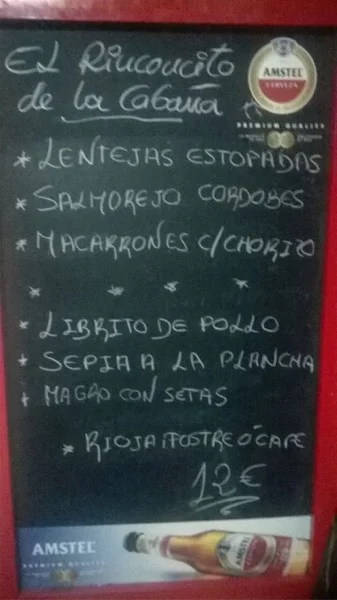 El Rinconcito
de la Cabaña
AMSTEL
CERVEZA
PREMIUM QUALITY
* LENTEJAS ESTOFADAS
* SALMOREJO CORDOBES
* MACARRONES C/CHORIZO
* * * *
* LIBRITO DE POLLO
* SEPIA A LA PLANCHA
* MAGRO CON SETAS
* RIOJA POSTRE O CAFE
12€
AMSTEL
PREMIUM QUALITY
AMSTEL